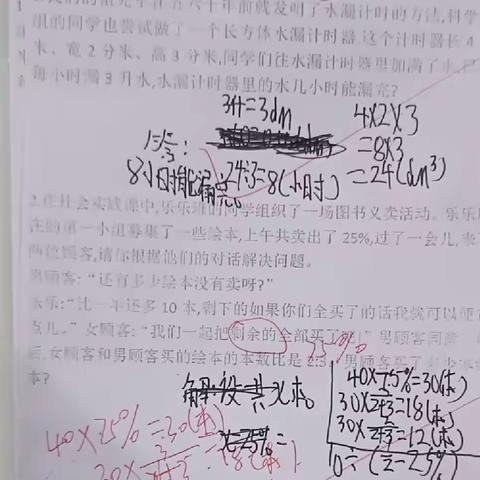 我们的祖先早在五六十年前就发明了水漏计时的方法,科学
组的同学也尝试做了一个长方体水漏计时器,这个计时器长4
米、宽2分米、高3分米,同学们往水漏计时器里加满了水,
每小时漏3升水,水漏计时器里的水几小时能漏完?
3升=3dm
4×2×3
=8×3
=24(dm³)
24÷3=8(小时)
8小时能漏完
2.在社会实践课中,乐乐班的同学组织了一场图书义卖活动。乐乐
在的第一小组募集了一些绘本,上午共卖出了25%,过了一会儿,来
两位顾客,请你根据他们的对话解决问题。
男顾客:“还有多少绘本没有卖呀?”
乐乐:“比一半还多10本,剩下的如果你们全买了的话我就可以便宜
点儿。”女顾客:“我们一起把剩余的全部买了吧!”男顾客同意
后,女顾客和男顾客买的绘本的本数比是2:3,男顾客买了多少本
本?
解设共x本。
40×75%=30(本)
30×3/2+3=18(本)
30×2/2+3=12(本)
40×75%=30(本)
30×3/2+3=18(本)